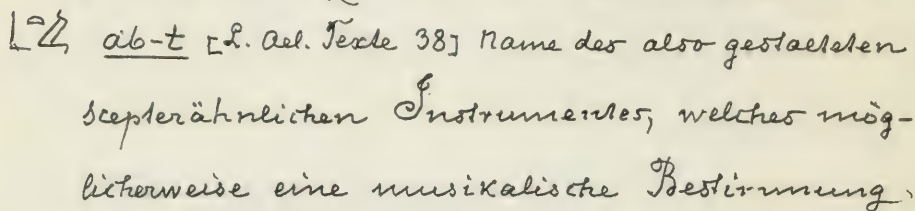 ab-t [L. Ael. Texte 38] Name des also gestalteten
scepterähnlichen Instrumentes, welches mög-
licherweise eine musikalische Bestimmung